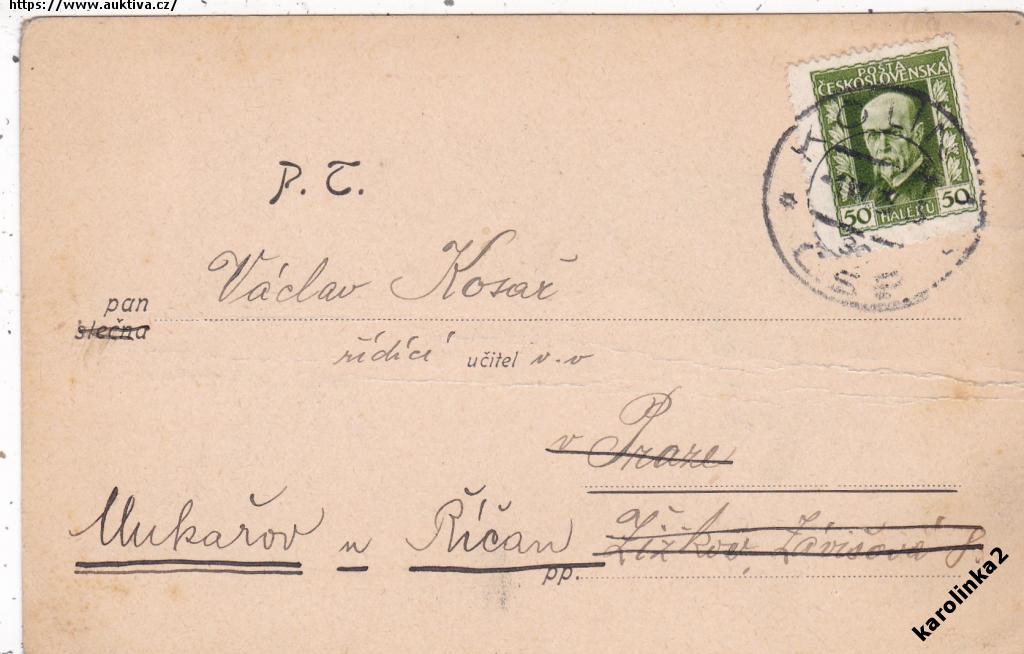 https://www.auktiva.cz/
POŠTA
ČESKOSLOVENSKÁ
50 HALÉŘŮ 50
KOLÍN
P. T.
Václav Kosař
pan
slečna
řídící učitel v. v
v Praze
Mukařov u Říčan Žižkov, Závišova 8.
pp.
karolinka2